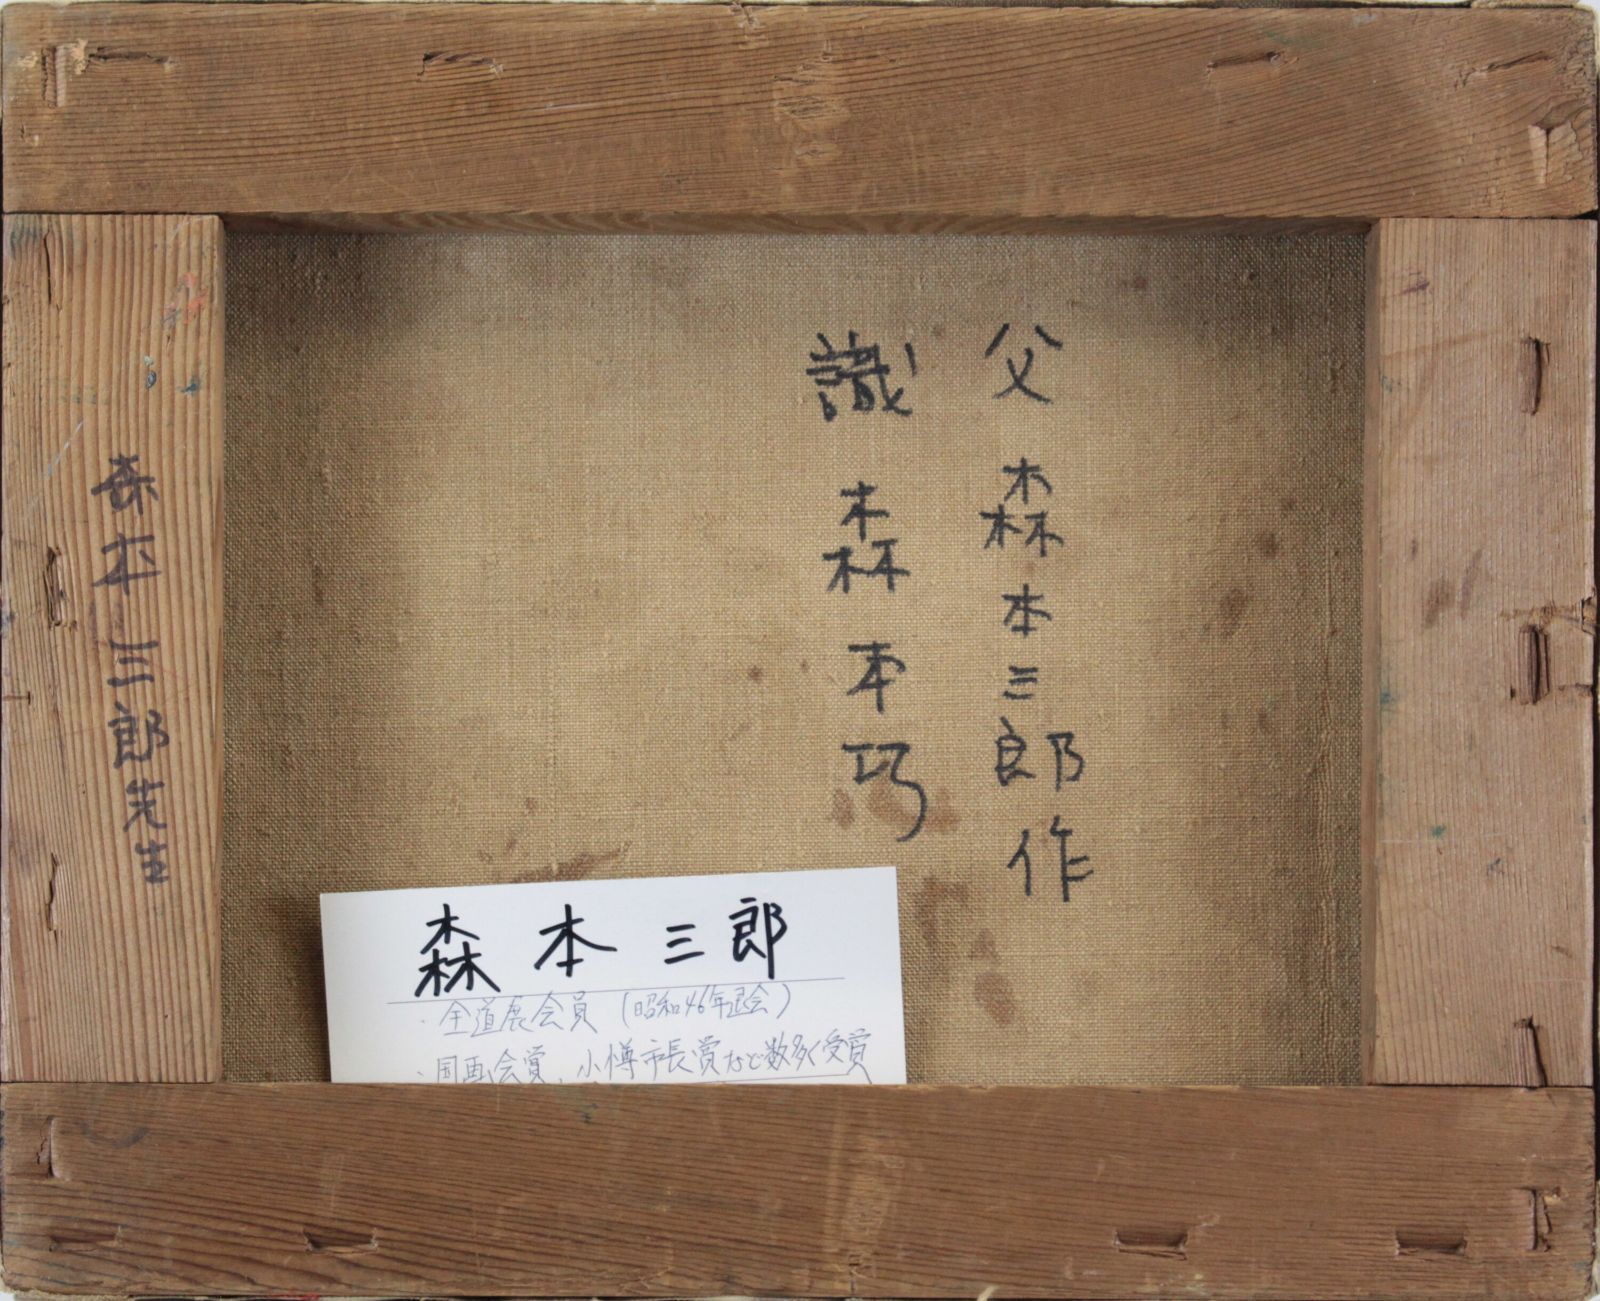 父 森本三郎作
識 森本巧
森本三郎先生
森本三郎
・全道展会員(昭和46年退会)
・国画会賞、小樽市長賞など数多く受賞